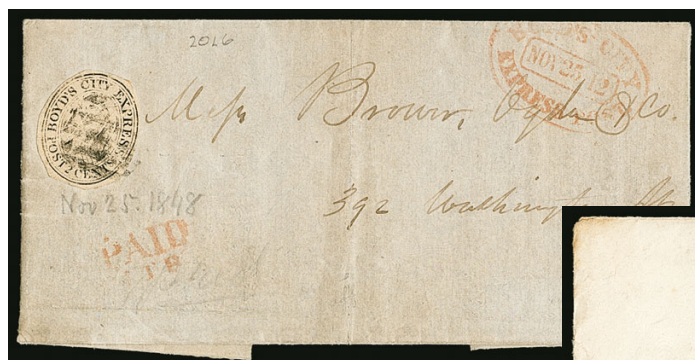 2016
BOYD'S CITY EXPRESS POST 2 CENTS
BOYD'S CITY EXPRESS
NOV 25 12
Mess Brown, Ogden & Co.
392 Washington St
Nov 25. 1848
PAID